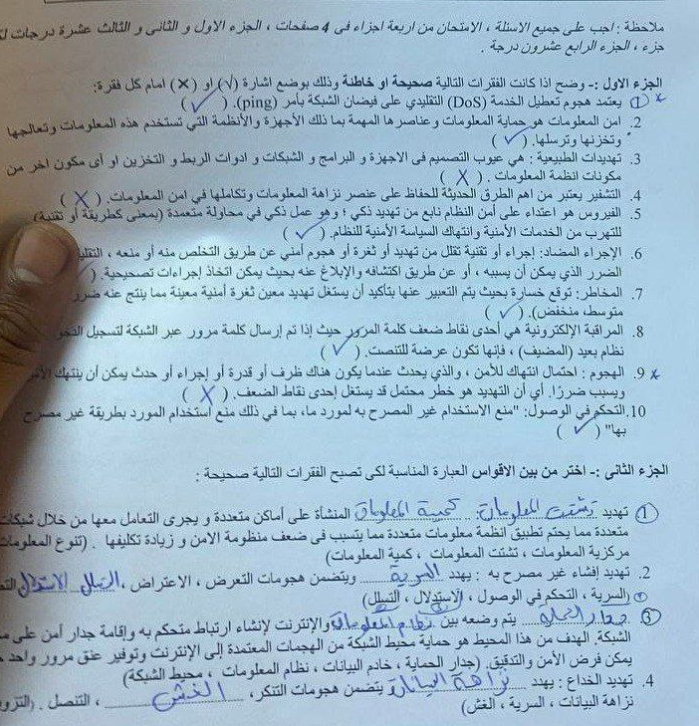 ملاحظة: اجب على جميع الاسئلة ، الامتحان من اربعة اجزاء في 4 صفحات ، الجزء الاول و الثاني و الثالث عشرة درجات
جزء ، الجزء الرابع عشرون درجة .
الجزء الاول :- وضح اذا كانت الفقرات التالية صحيحة او خاطئة وذلك بوضع اشارة (√) او (×) امام كل فقرة:
1 يعتمد هجوم تعطيل الخدمة (DoS) التقليدي على فيضان الشبكة بأوامر (ping). ( √ )
2. امن المعلومات هو حماية المعلومات و عناصرها المهمة بما ذلك الأجهزة والأنظمة التي تستخدم هذه المعلومات وتعالجها
وتخزنها وترسلها. ( √ )
3. تهديدات الطبيعية : هي عيوب التصميم في الاجهزة و البرامج و الشبكات و ادوات الربط و التخزين او أي مكون اخر من
مكونات انظمة المعلومات . ( X )
4. التشفير يعتبر من اهم الطرق الحديثة للحفاظ على عنصر نزاهة المعلومات وتكاملها في امن المعلومات. ( X )
5. الفيروس هو اعتداء على أمن النظام نابع من تهديد ذكي ؛ وهو عمل ذكي في محاولة متعمدة (بمعنى كطريقة أو تقنية)
للتهرب من الخدمات الأمنية وانتهاك السياسة الأمنية للنظام. ( √ )
6. الإجراء المضاد: إجراء أو تقنية تقلل من تهديد أو ثغرة أو هجوم أمني عن طريق التخلص منه أو منعه ، التقليل
الضرر الذي يمكن أن يسببه ، أو عن طريق اكتشافه والإبلاغ عنه بحيث يمكن اتخاذ إجراءات تصحيحية. (
7. المخاطر: توقع خسارة بحيث يتم التعبير عنها بتأكيد أن يستغل تهديد معين ثغرة أمنية معينة مما ينتج عنه ضرر
متوسط، منخفض). ( √ )
8. المراقبة الإلكترونية هي أحدى نقاط ضعف كلمة المرور حيث إذا تم إرسال كلمة مرور عبر الشبكة لتسجيل
نظام بعيد (بالميضف) ، فإنها تكون عرضة للتنصت. ( √ )
9. الهجوم : احتمال انتهاك للأمن ، والذي يحدث عندما يكون هناك ظرف أو قدرة أو إجراء أو حدث يمكن أن ينتهك
ويسبب ضررًا. أي أن التهديد هو خطر محتمل قد يستغل إحدى نقاط الضعف. ( X )
10. التحكم في الوصول: "منع الاستخدام غير المصرح به لمورد ما، بما في ذلك منع استخدام المورد بطريقة غير مصرح
بها" ( √ )
الجزء الثاني :- اختر من بين الاقواس العبارة المناسبة لكي تصبح الفقرات التالية صحيحة :
1 تهديد تشتت المعلومات : كمية المعلومات المنشأة على أماكن متعددة و يجري التعامل معها من خلال شبكات
متعددة مما يحتم تطبيق انظمة معلومات متعددة مما يتسبب في ضعف منظومة الامن و زيادة تكليفها . (تنوع المعلومات
مركزية المعلومات ، تشتت المعلومات ، كمية المعلومات)
2. تهديد إفشاء غير مصرح به : يهدد السرية ويتضمن هجومات التعرض ، الاعتراض ، التسلل الاستدلال
(السرية ، التحكم في الوصول ، الاستدلال ، التسلل)
3 جدار الحماية يتم وضعه بين نظام المعلومات والإنترنت لإنشاء ارتباط متحكم به وإقامة جدار أمن على
الشبكة. الهدف من هذا المحيط هو حماية محيط الشبكة من الهجمات المعتمدة إلى الإنترنت وتوفير عنق مرور واحد
يمكن فرض الأمن والتدقيق. (جدار الحماية ، خادم البيانات ، نظام المعلومات ، محيط الشبكة)
4. تهديد الخداع : يهدد نزاهة البيانات يتضمن هجومات التنكر ، الغش ، التنصل . (
نزاهة البيانات ، السرية ، الغش)